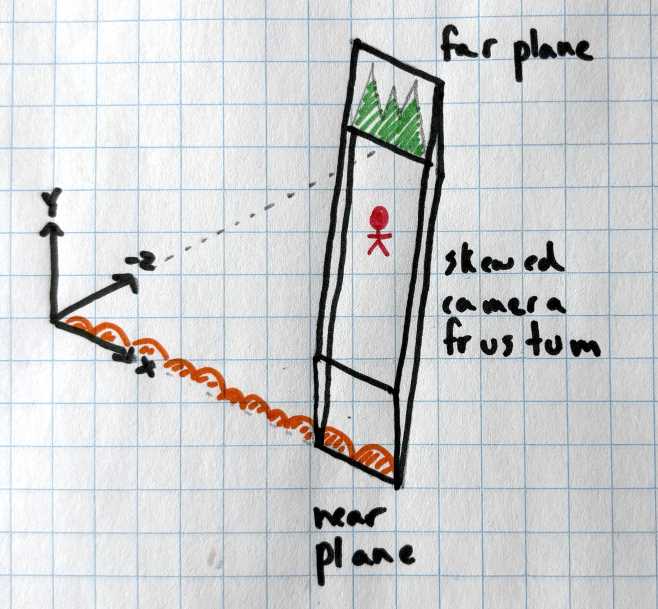 far plane
Y
-z
skewed
camera
frustum
x
near
plane